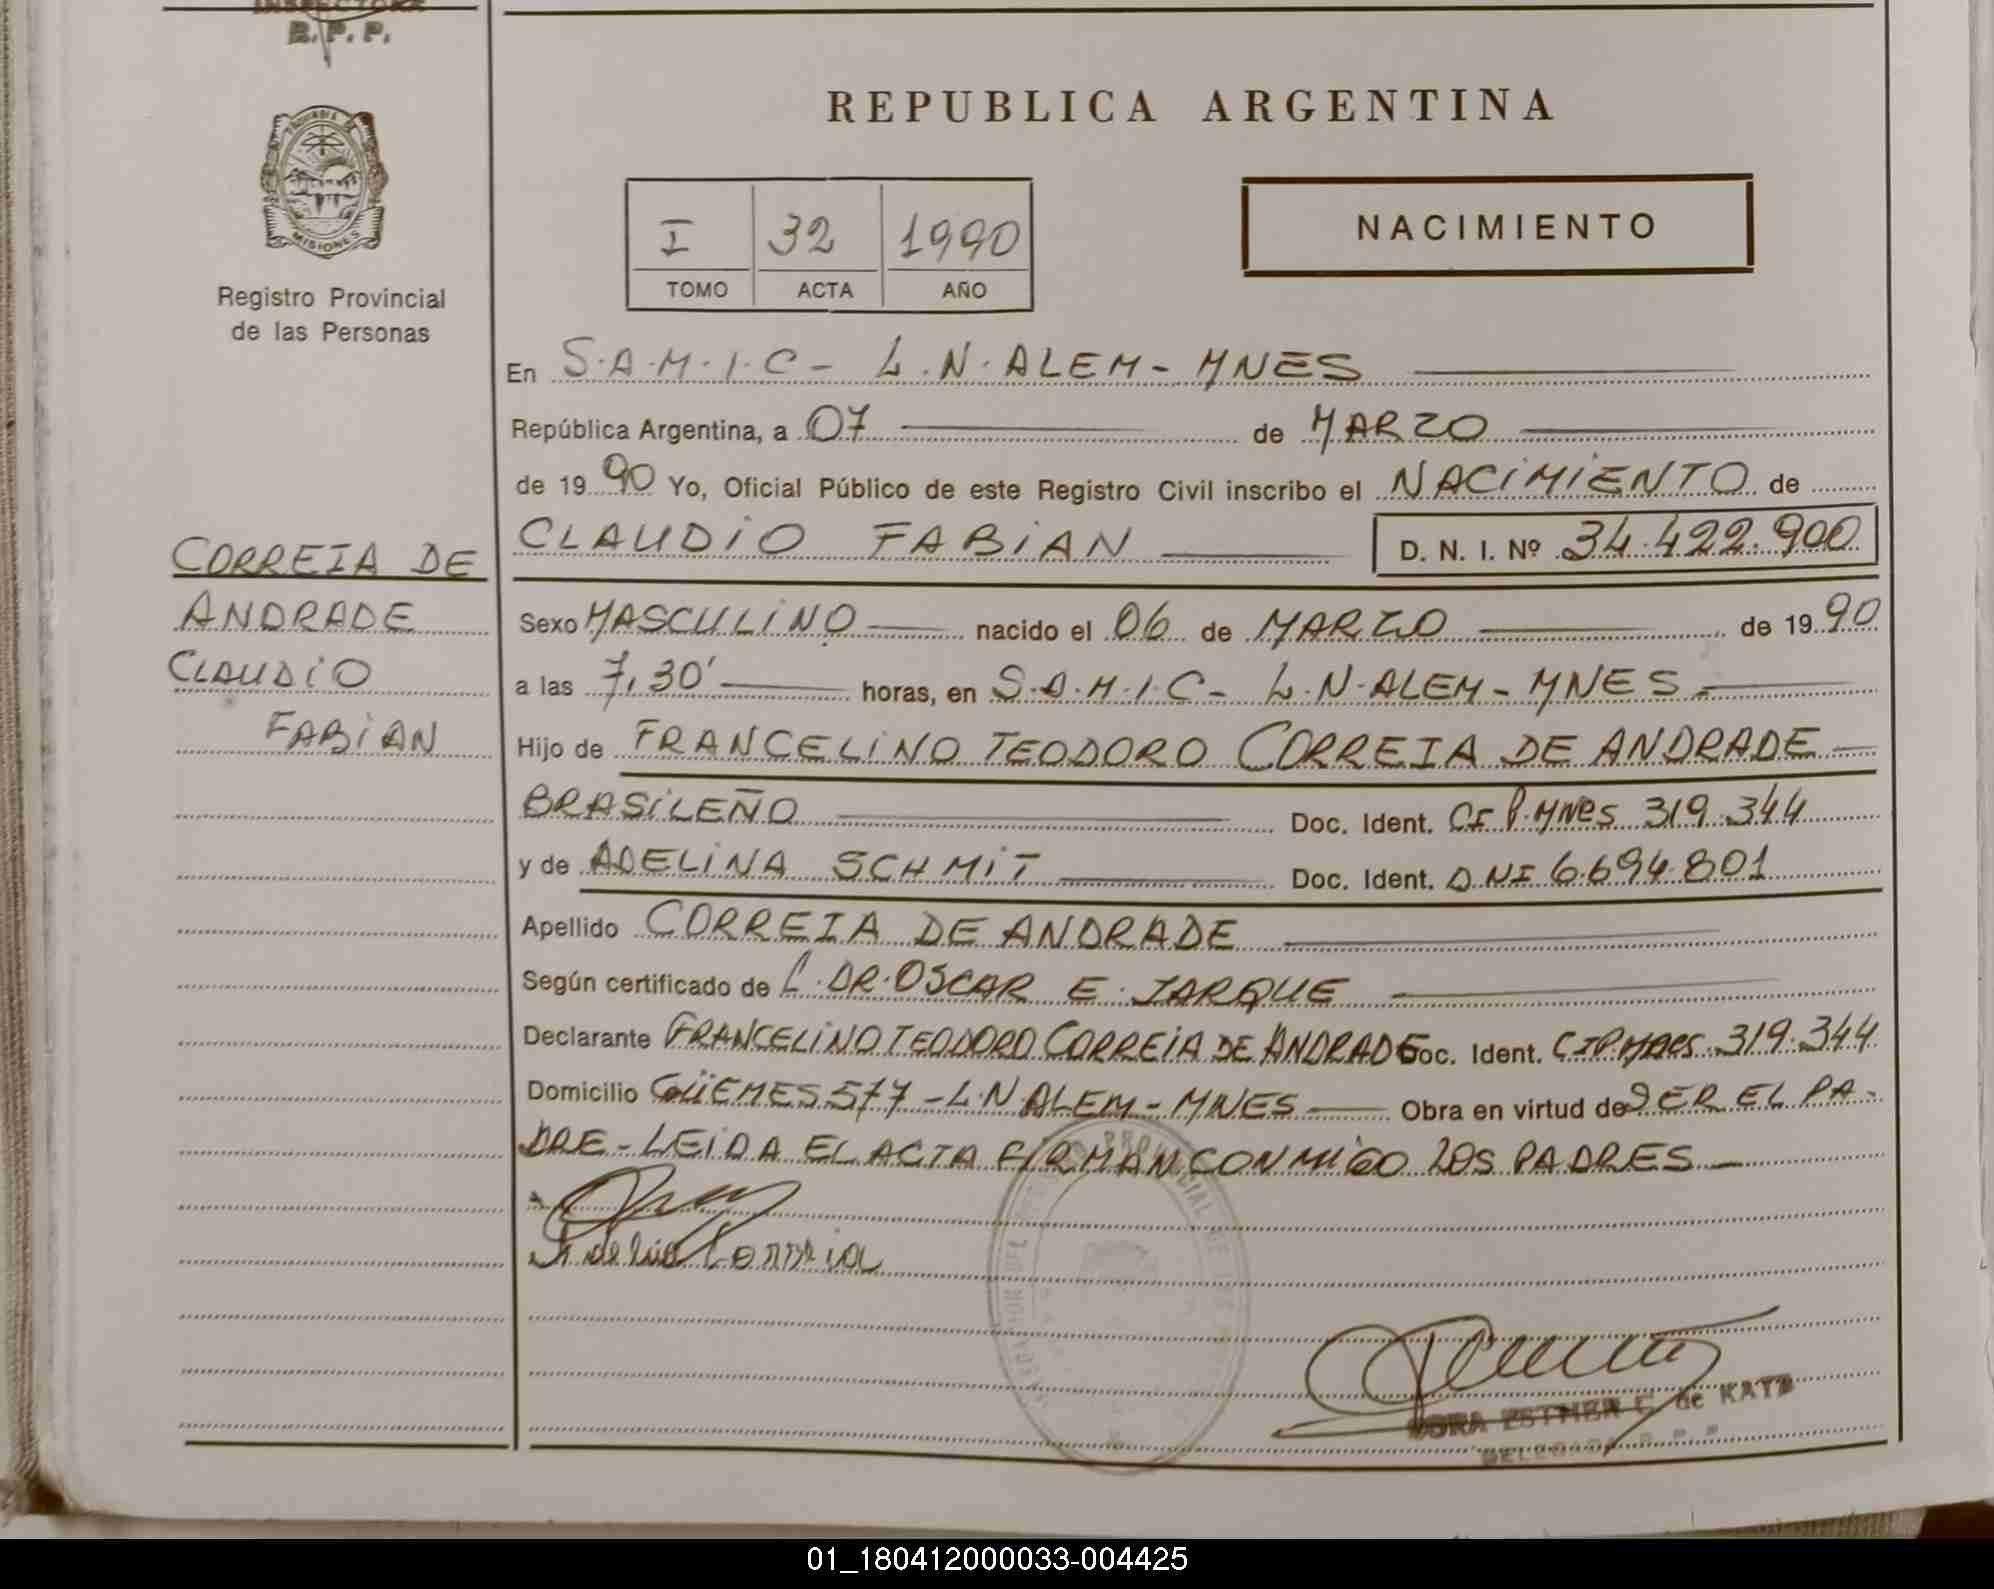 INSPECTORA
R. P. P.
REPUBLICA ARGENTINA
I 32 1990
TOMO ACTA AÑO
NACIMIENTO
MISIONES
Registro Provincial
de las Personas
En S.A.M.I.C - L.N. ALEM - MNES
República Argentina, a 07 de MARZO
de 19 90 Yo, Oficial Público de este Registro Civil inscribo el NACIMIENTO de
CLAUDIO FABIAN D. N. I. Nº 34.422.900
CORREIA DE
ANDRADE
CLAUDIO
FABIAN
Sexo MASCULINO nacido el 06 de MARZO de 19 90
a las 7,30' horas, en S.A.M.I.C - L.N. ALEM - MNES
Hijo de FRANCELINO TEODORO CORREIA DE ANDRADE
BRASILEÑO Doc. Ident. CI P. MNES 319.344
y de ADELINA SCHMIT Doc. Ident. DNI 6.694.801
Apellido CORREIA DE ANDRADE
Según certificado de L. DR. OSCAR E. JARQUE
Declarante FRANCELINO TEODORO CORREIA DE ANDRADE Doc. Ident. CIP. MNES 319.344
Domicilio GÜEMES 577 - L.N ALEM - MNES Obra en virtud de SER EL PA-
DRE - LEIDA EL ACTA FIRMAN CONMIGO LOS PADRES
Correia
ESTHER C. de KATZ
DELEGADA R. P. P.
01_180412000033-004425